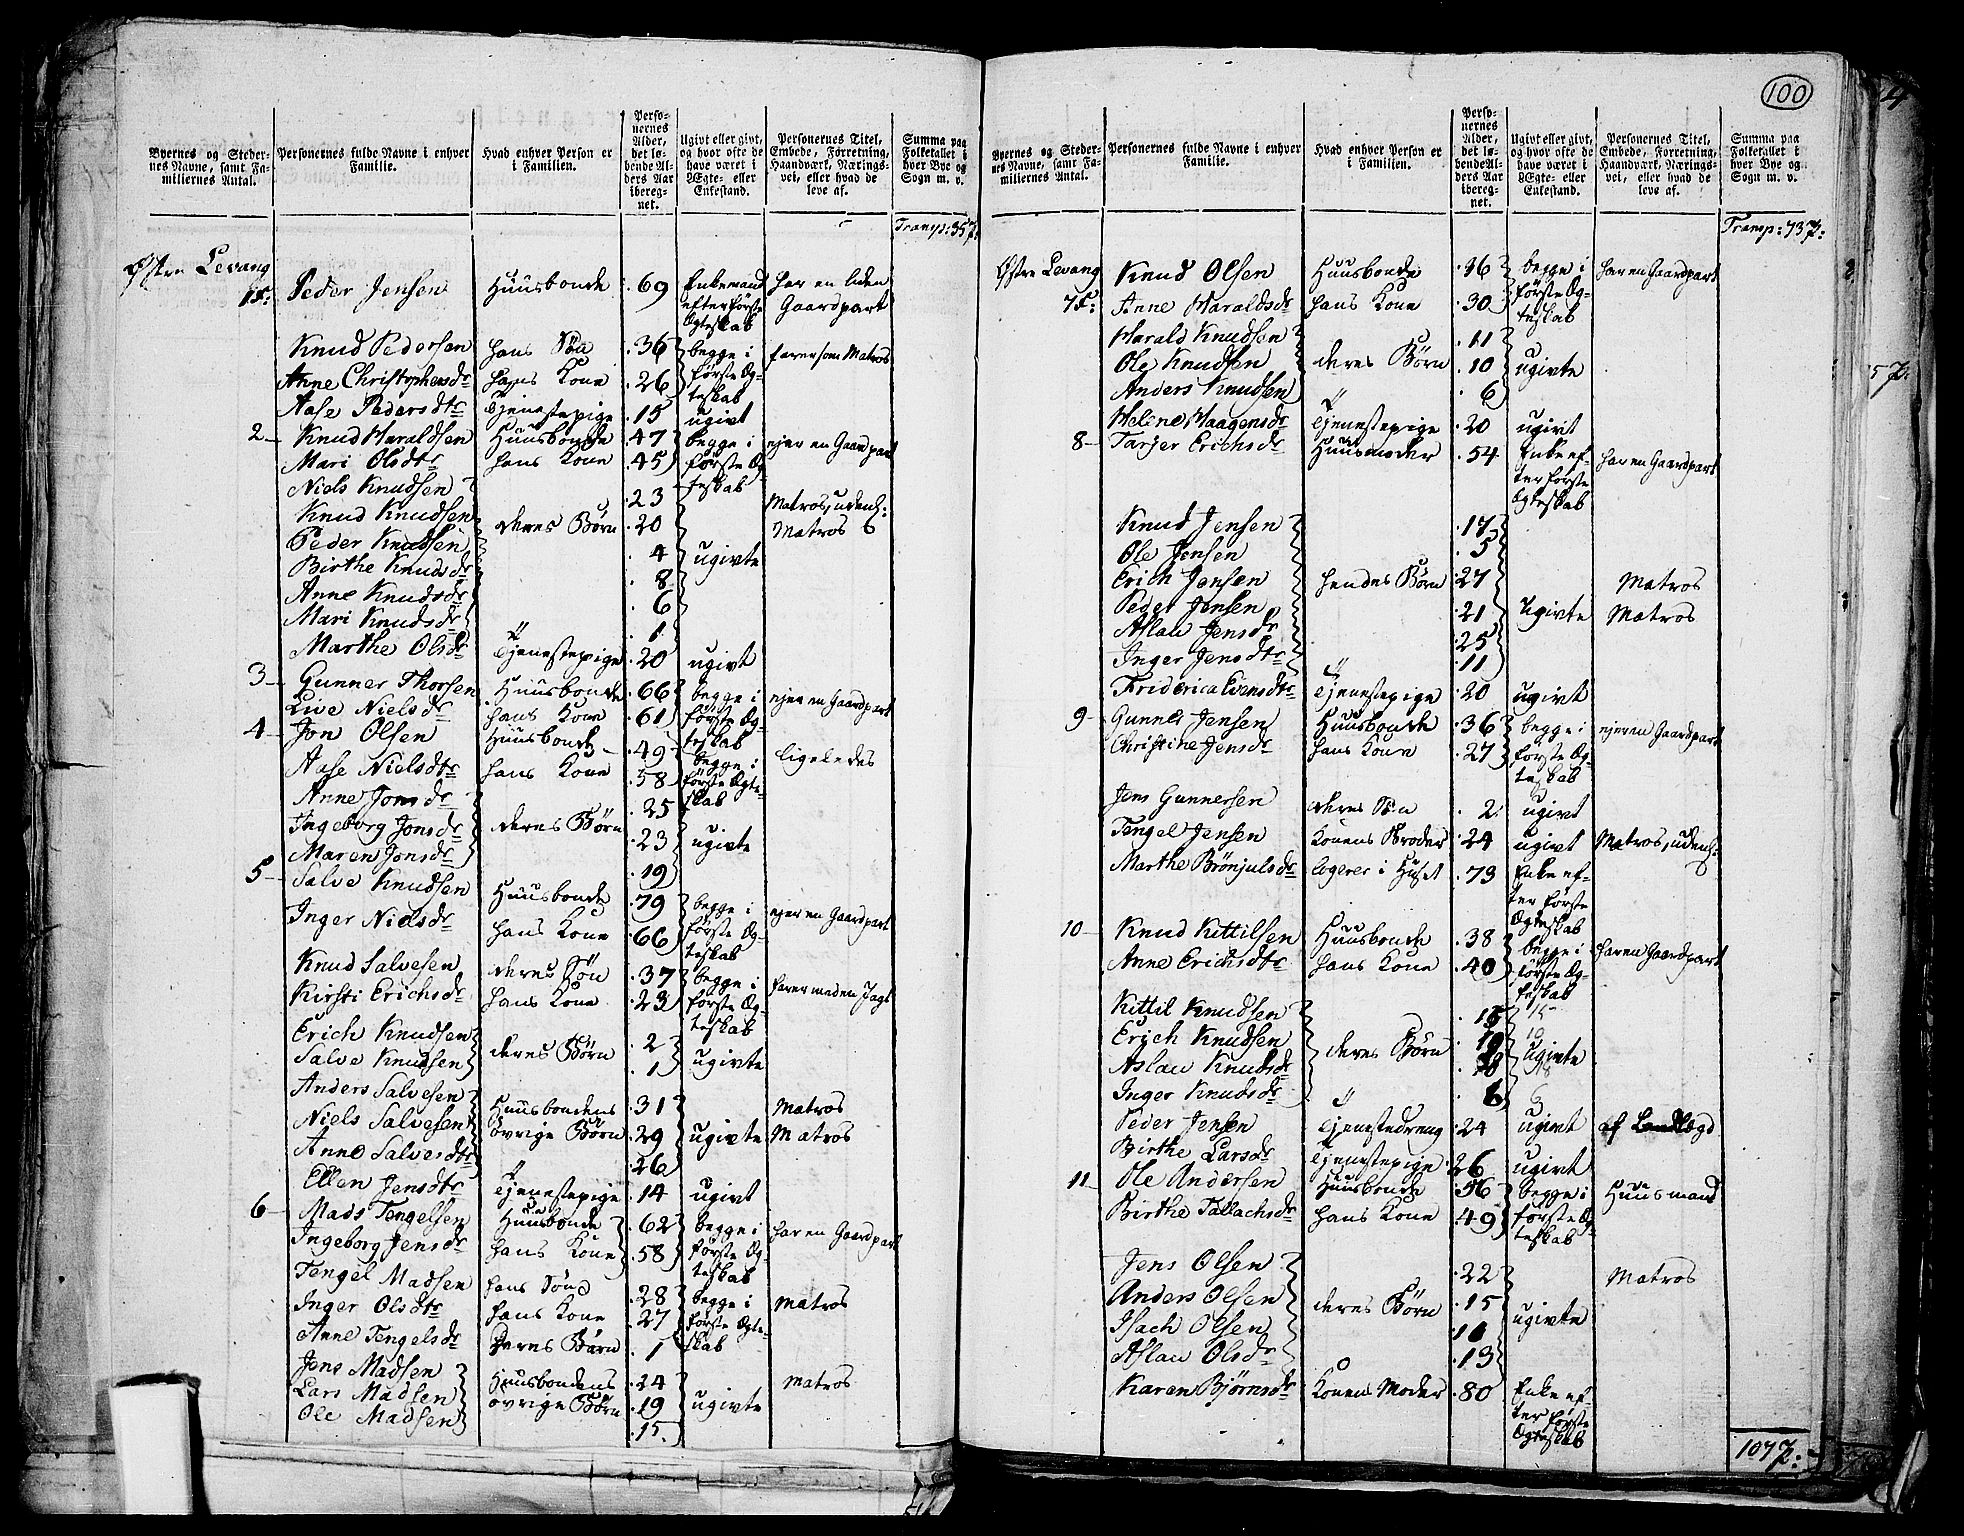 100
Byernes og Steder-nes Navne, samt Fa-miliernes Antal. | Personernes fulde Navne i enhver Familie. | Hvad enhver Person er i Familien. | Perso-nernes Alder, det lø-bende Al-ders Aar ibereg-net. | Ugivt eller givt, og hvor ofte de have været i Ægte- eller Enkestand. | Personernes Titel, Embede, Forretning, Haandværk, Nærings-vei, eller hvad de leve af. | Summa paa Folketallet i hver Bye og Sogn m. v.
Transp: 35 p:
Østre Levang
1 F: Peder Jensen Huusbonde 69 Enkemand efter første Ægteskab har en liden Gaardpart
Knud Pedersen hans Søn 36 begge i første Æg-teskab farer som Matros
Anne Christophersdr hans Kone 26
Aase Pedersdtr Tjenestepige 15 ugivt
2 Knud Haraldsen Huusbonde 47 begge i første Æg-teskab ejer en Gaardpart
Mari Olsdtr hans Kone 45
Niels Knudsen 23 Matros, udenl:
Knud Knudsen deres Børn 20 Matros
Peder Knudsen 4 ugivte
Birthe Knudsdr 8
Anne Knudsdr 6
Mari Knudsdr 1
Marthe Olsdr Tjenestepige 20 ugivt
3 Gunner Thorsen Huusbonde 66 begge i første Æg-teskab ejer en Gaardpart
Live Nielsdr hans Kone 61
4 Jon Olsen Huusbonde 49 begge i første Ægte-skab ligeledes
Aase Nielsdtr hans Kone 58
Anne Jonsdr 25
Ingeborg Jonsdr deres Børn 23 ugivte
Maren Jonsdr 19
5 Salve Knudsen Huusbonde 79 begge i første Æg-teskab ejer en Gaardpart
Inger Nielsdr hans Kone 66
Knud Salvesen deres Søn 37 begge i første Æg-teskab farer med en Jagt
Kirsti Erichsdr hans Kone 23
Erich Knudsen deres Børn 2 ugivte
Salve Knudsen 1
Anders Salvesen Huusbondens øvrige Børn 31 Matros
Niels Salvesen 29 ugivte Matros
Anne Salvesdtr 26
Ellen Jensdtr Tjenestepige 14 ugivt
6 Mads Tengelsen Huusbonde 62 begge i første Æg-teskab har en Gaardpart
Ingeborg Jensdr hans Kone 58
Tengel Madsen hans Søn 28 begge i første Ægte-skab Matros
Inger Olsdtr hans Kone 27
Anne Tengelsdr Deres Børn 1
Jens Madsen Huusbondens øvrige Børn 24 Matros
Lars Madsen 19 ugivte
Ole Madsen 15
Byernes og Steder-nes Navne, samt Fa-miliernes Antal. | Personernes fulde Navne i enhver Familie. | Hvad enhver Person er i Familien. | Perso-nernes Alder, det lø-bende Al-ders Aar ibereg-net. | Ugivt eller givt, og hvor ofte de have været i Ægte- eller Enkestand. | Personernes Titel, Embede, Forretning, Haandværk, Nærings-vei, eller hvad de leve af. | Summa paa Folketallet i hver Bye og Sogn m. v.
Transp: 73 p:
Østre Levang
7 F: Knud Olsen Huusbonde 36 begge i første Æg-teskab har en Gaardpart
Anne Haraldsdr hans Kone 30
Harald Knudsen 11
Ole Knudsen deres Børn 10 ugivte
Anders Knudsen 6
Helene Haagensdr Tjenestepige 20 ugivt
8 Tarjer Erichsdr Huusmoder 54 Enke ef-ter første Ægteskab har en Gaardpart
Knud Jensen 17
Ole Jensen 5
Erich Jensen hendes Børn 27 Matros
Peder Jensen 21 Ugivte Matros
Aslau Jensdr 25
Inger Jensdtr 11
Friderica Evensdtr Tjenestepige 20 ugivt
9 Gunner Jensen Huusbonde 36 begge i første Æg-teskab ejer en Gaardpart
Christine Jensdr hans Kone 27
Jens Gunnersen deres Søn 2 ugivt
Tengel Jensen Konens Broder 24 ugivt Matros, udenl:
Marthe Brönjulsdr logerer i Huset 73 Enke ef-ter første Ægteskab
10 Knud Kittilsen Huusbonde 38 begge i første Æg-teskab har en Gaardpart
Anne Erichsdtr hans Kone 40
Kittil Knudsen 15 15
Erich Knudsen 10 10
Aslau Knudsdr deres Børn 18 ugivte 18
Inger Knudsdr 6 6
Peder Jensen Tjenestedreng 24 ugivt af Landlægd
Birthe Larsdr Tjenestepige 26 ugivt
11 Ole Andersen Huusbonde 56 begge i første Æg-teskab Huusmand
Birthe Tallachsdr hans Kone 49
Jens Olsen 22 Matros
Anders Olsen deres Børn 15 ugivte
Isach Olsen
Aslau Olsdr 13
Karen Bjørnsdr Konens Moder 80 Enke ef-ter første Ægteskab
107 p: